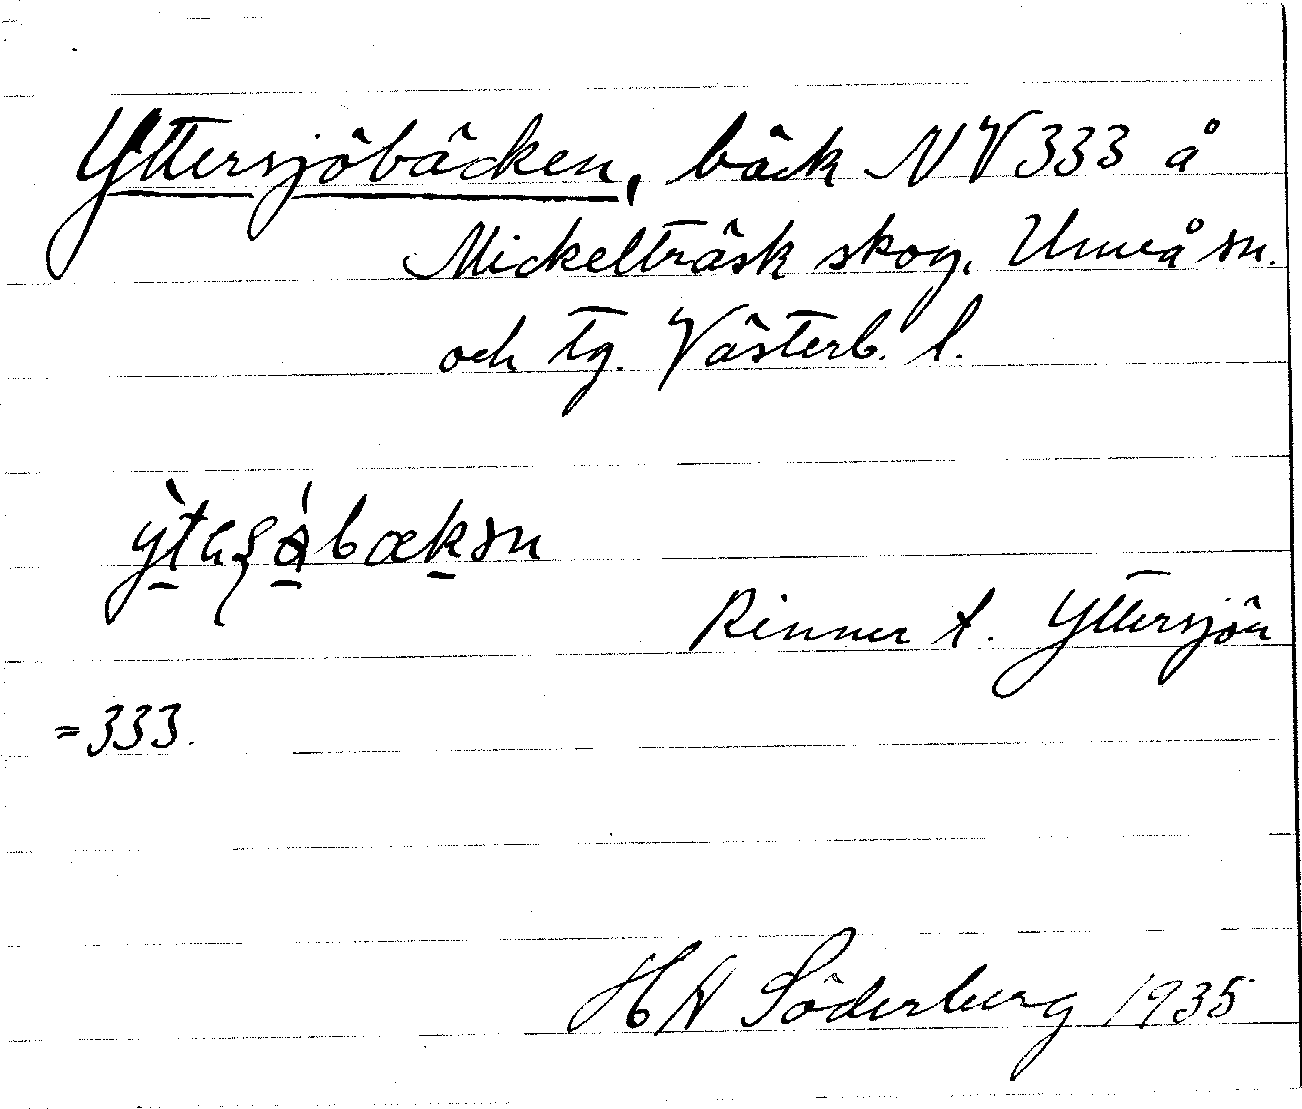 Yttersjöbäcken, bäck NV 333 å
Mickelträsk skog, Umeå sn.
och tg. Västerb. l.
Rinner t. Yttersjön
=333.
H N Söderberg 1935